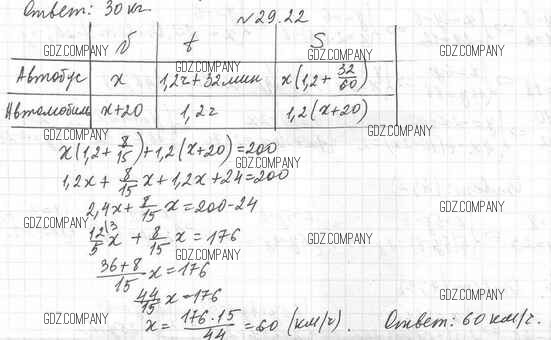 Ответ: 30 кг.
№29.22
v t S
Автобус x 1,2ч + 32мин x(1,2 + 32/60)
Автомобиль x+20 1,2ч 1,2(x+20)
x(1,2 + 8/15) + 1,2(x+20) = 200
1,2x + 8/15 x + 1,2x + 24 = 200
2,4x + 8/15 x = 200-24
12\3/5 x + 8/15 x = 176
36+8/15 x = 176
44/15 x = 176
x = 176·15/44 = 60 (км/ч). Ответ: 60 км/ч.
GDZ.COMPANY
GDZ.COMPANY
GDZ.COMPANY
GDZ.COMPANY
GDZ.COMPANY
GDZ.COMPANY
GDZ.COMPANY
GDZ.COMPANY
GDZ.COMPANY
GDZ.COMPANY
GDZ.COMPANY
GDZ.COMPANY